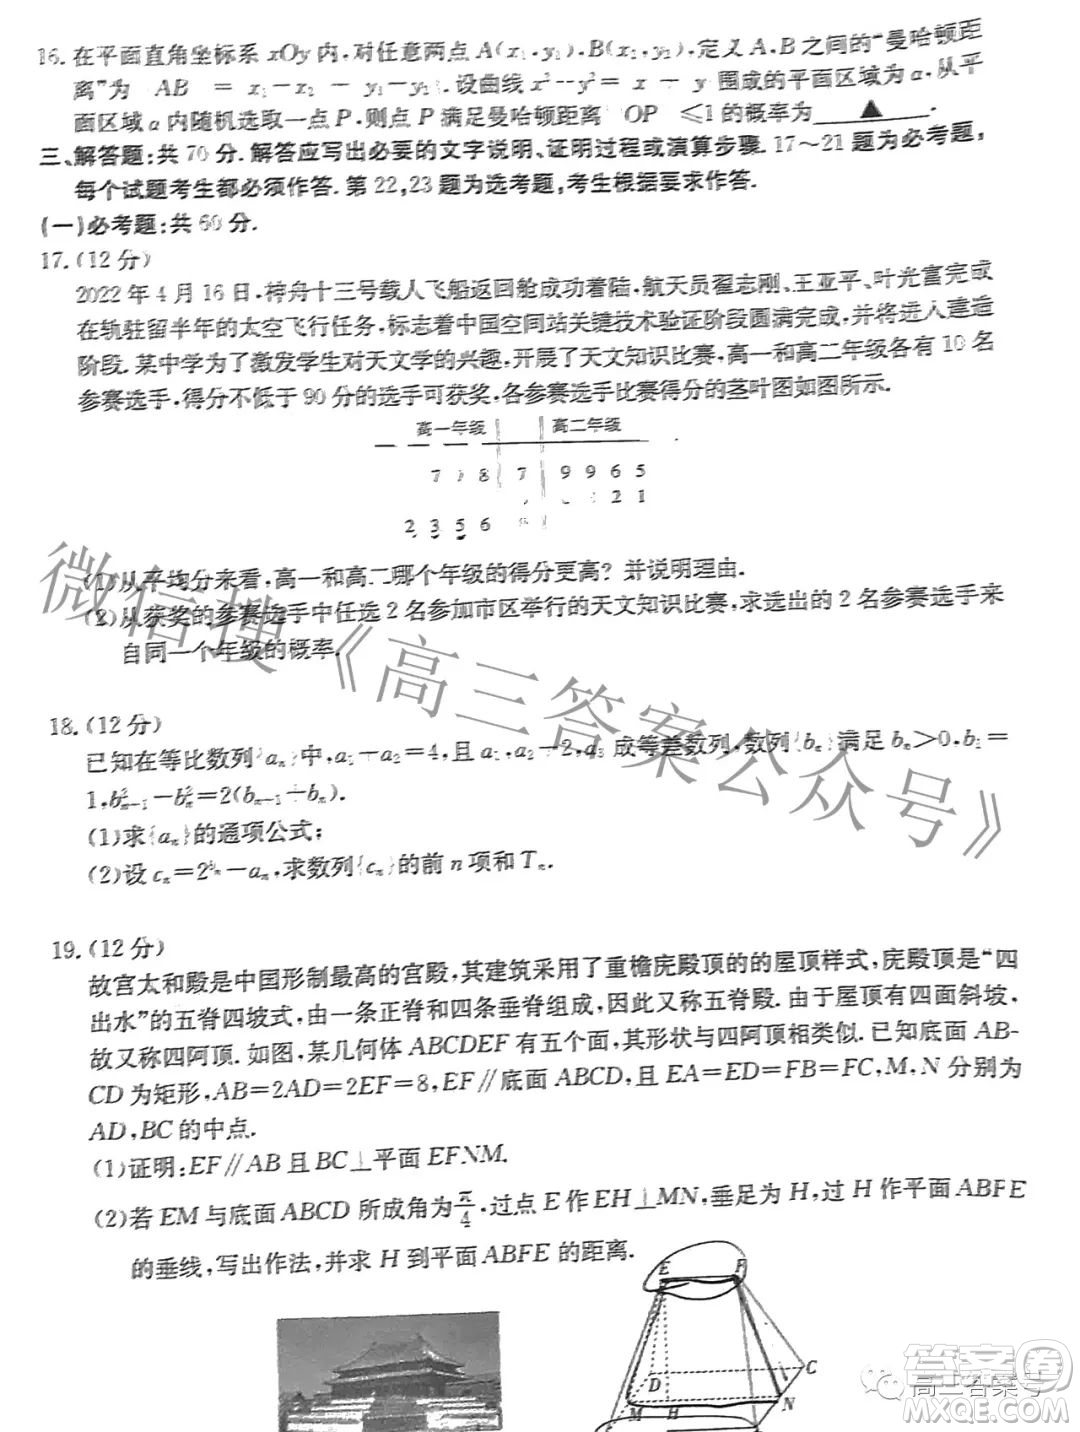 16. 在平面直角坐标系 xOy 内,对任意两点 A(x₁,y₁),B(x₂,y₂),定义 A,B 之间的“曼哈顿距
离”为 AB = x₁-x₂ - y₁-y₂ .设曲线 x²-y²= x - y 围成的平面区域为 α,从平
面区域 α 内随机选取一点 P,则点 P 满足曼哈顿距离 OP ≤1 的概率为 ▲ .
三、解答题:共 70 分.解答应写出必要的文字说明、证明过程或演算步骤.17～21 题为必考题,
每个试题考生都必须作答.第 22,23 题为选考题,考生根据要求作答.
(一)必考题:共 60 分.
17.(12 分)
2022 年 4 月 16 日,神舟十三号载人飞船返回舱成功着陆,航天员翟志刚、王亚平、叶光富完成
在轨驻留半年的太空飞行任务,标志着中国空间站关键技术验证阶段圆满完成,并将进入建造
阶段.某中学为了激发学生对天文学的兴趣,开展了天文知识比赛,高一和高二年级各有 10 名
参赛选手,得分不低于 90 分的选手可获奖,各参赛选手比赛得分的茎叶图如图所示.
高一年级 高二年级
7 7 8 7 9 9 6 5
2 1
2 3 5 6
(1)从平均分来看,高一和高二哪个年级的得分更高?并说明理由.
(2)从获奖的参赛选手中任选 2 名参加市区举行的天文知识比赛,求选出的 2 名参赛选手来
自同一个年级的概率.
18.(12 分)
已知在等比数列{aₙ}中,a₁-a₂=4,且 a₁,a₂-2,a₃ 成等差数列,数列{bₙ}满足 bₙ>0,b₁=
1,b²ₙ₋₁-b²ₙ=2(bₙ₋₁+bₙ).
(1)求{aₙ}的通项公式;
(2)设 cₙ=2^bₙ-aₙ,求数列{cₙ}的前 n 项和 Tₙ.
19.(12 分)
故宫太和殿是中国形制最高的宫殿,其建筑采用了重檐庑殿顶的的屋顶样式,庑殿顶是“四
出水”的五脊四坡式,由一条正脊和四条垂脊组成,因此又称五脊殿.由于屋顶有四面斜坡,
故又称四阿顶.如图,某几何体 ABCDEF 有五个面,其形状与四阿顶相类似.已知底面 AB-
CD 为矩形,AB=2AD=2EF=8,EF∥底面 ABCD,且 EA=ED=FB=FC,M,N 分别为
AD,BC 的中点.
(1)证明:EF∥AB 且 BC⊥平面 EFNM.
(2)若 EM 与底面 ABCD 所成角为 π/4,过点 E 作 EH⊥MN,垂足为 H,过 H 作平面 ABFE
的垂线,写出作法,并求 H 到平面 ABFE 的距离.
E F
D C
M H N
微信搜《高三答案公众号》
高三答案号
答案圈
MXQE.COM